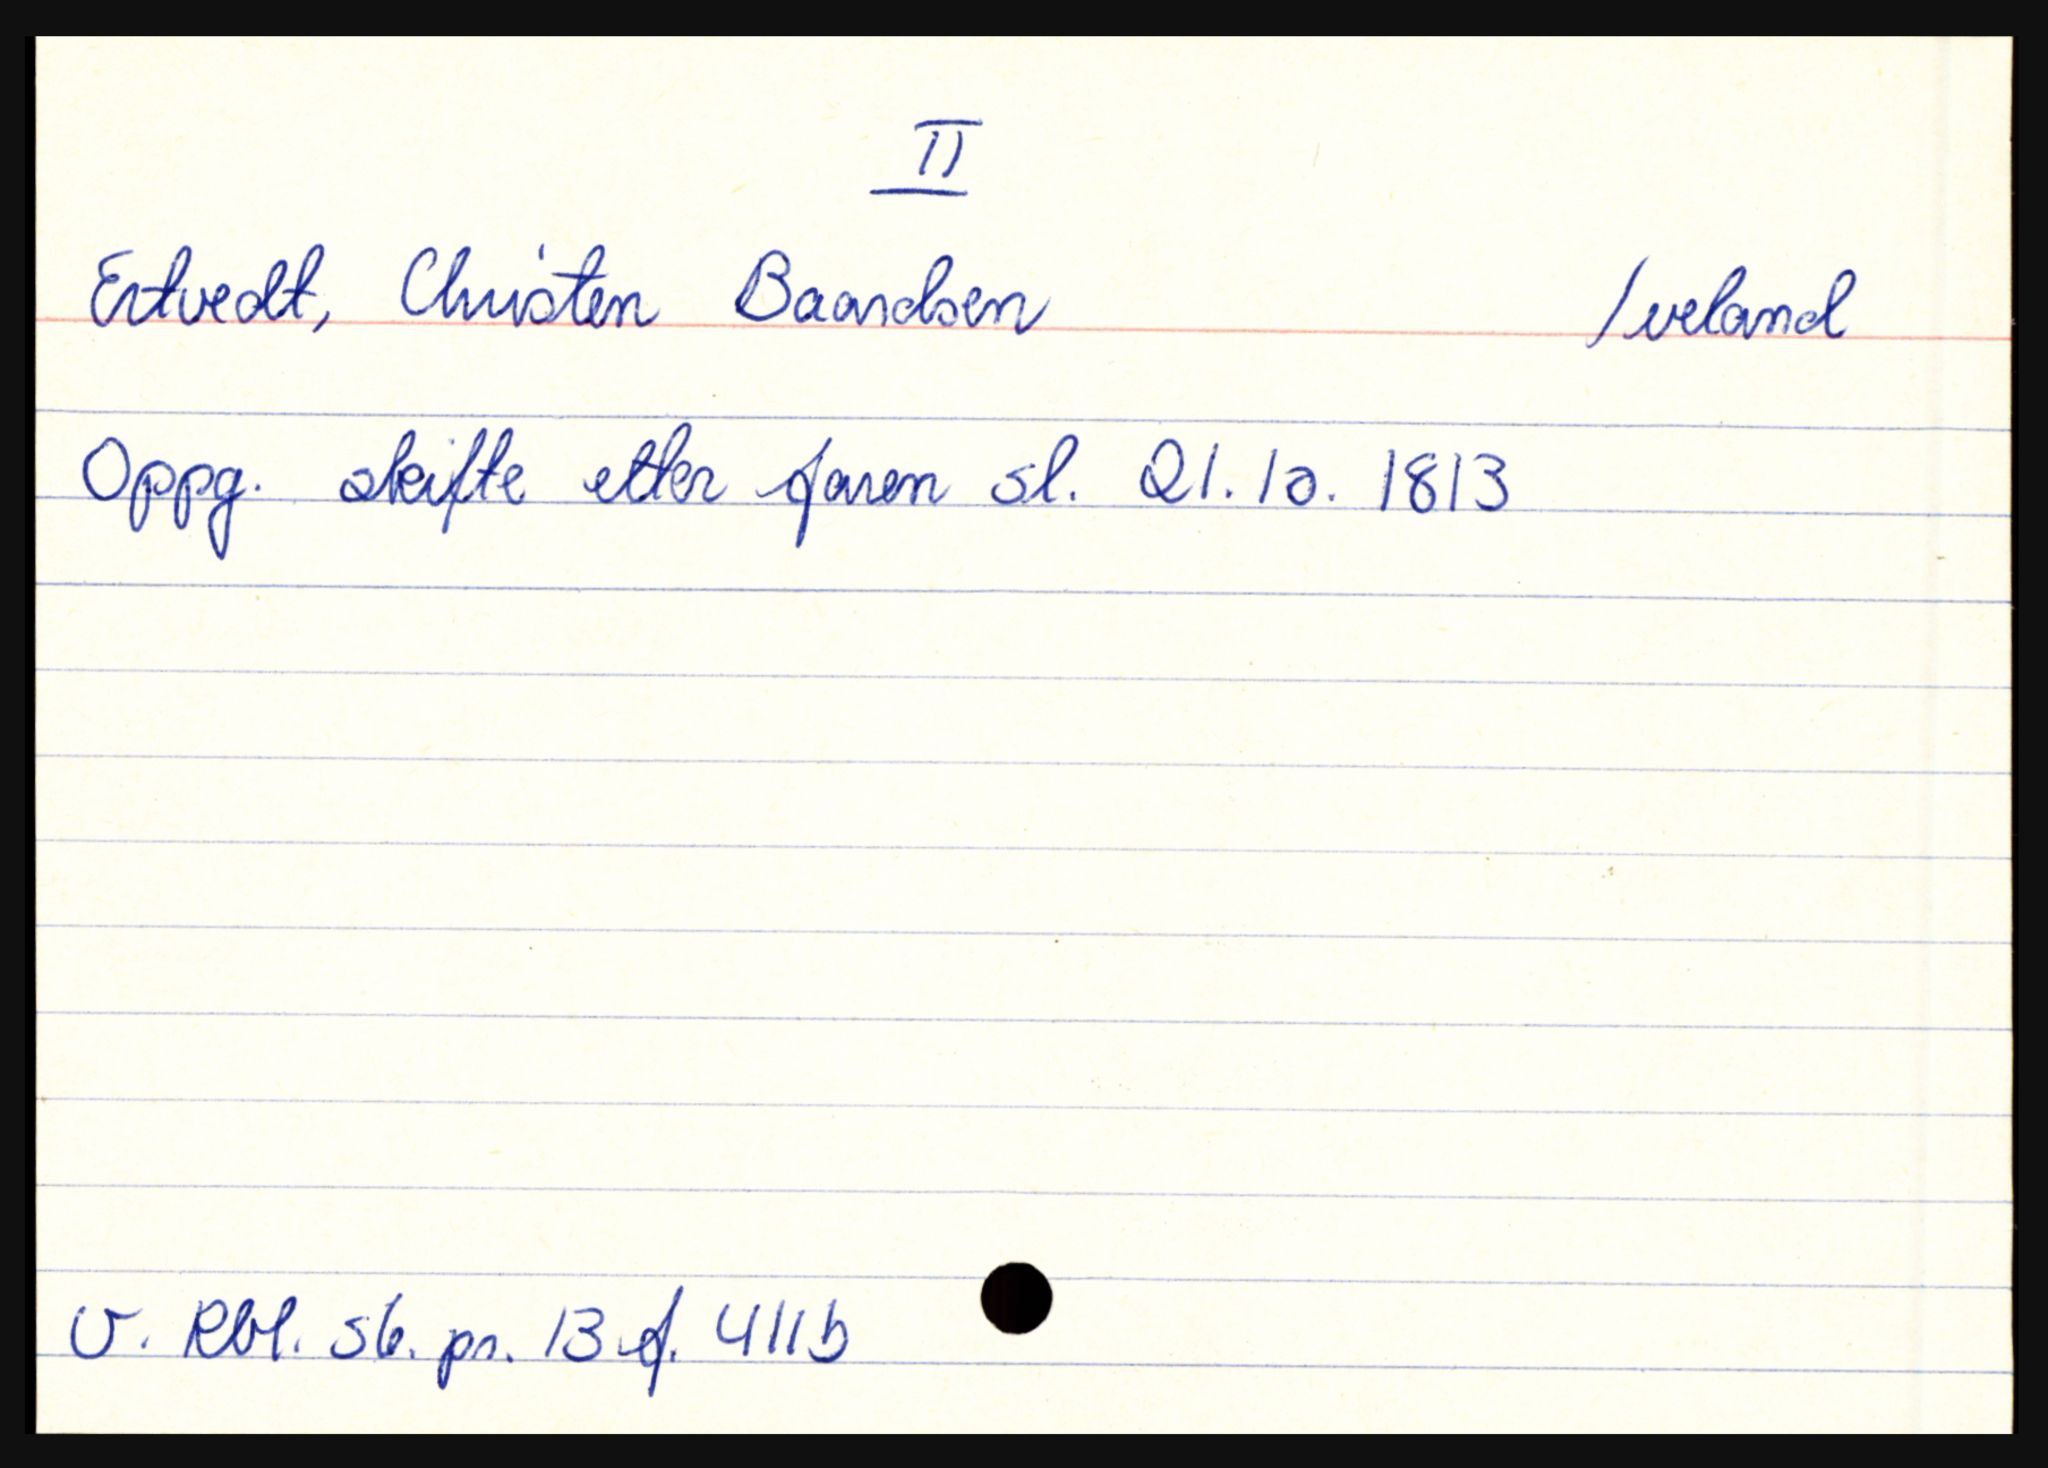 II
Ertvedt, Christen Baardsen Iveland
Oppg. skifte etter faren sl. 21.10.1813
V. Rbl. sk. pr. 13 f. 411b